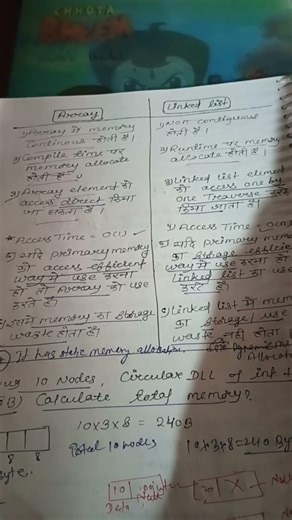 CHHOTA
Array
Linked list
1) Array में memory
Continuous होती है।
2) Compile time पर
memory allocate
होती है
3) Array element को
access direct किया
जा सकता है।
* Access Time = O(1)
5) यदि primary memory
को access efficient
way में use करना
हो तो Array को use
करते हैं।
इसमें memory का storage
waste होता है।
1) Non contiguous
होती है।
2) Runtime पर memory
allocate होती है।
3) Linked list element
को access one by
one Traverse करके
किया जाता है।
4) Access Time =
5) यदि primary memory
का storage efficient
way में use करना हो
Linked list का use
करते हैं।
6) Linked list में memory
का storage use
waste नहीं होता
It has static memory allocation.
10 Nodes, Circular DLL of inf
Calculate total memory?
10x3x8 = 240B
Total 10 nodes
10x3x8=240 Byte
8 8
Byte.
10
Data
20 X